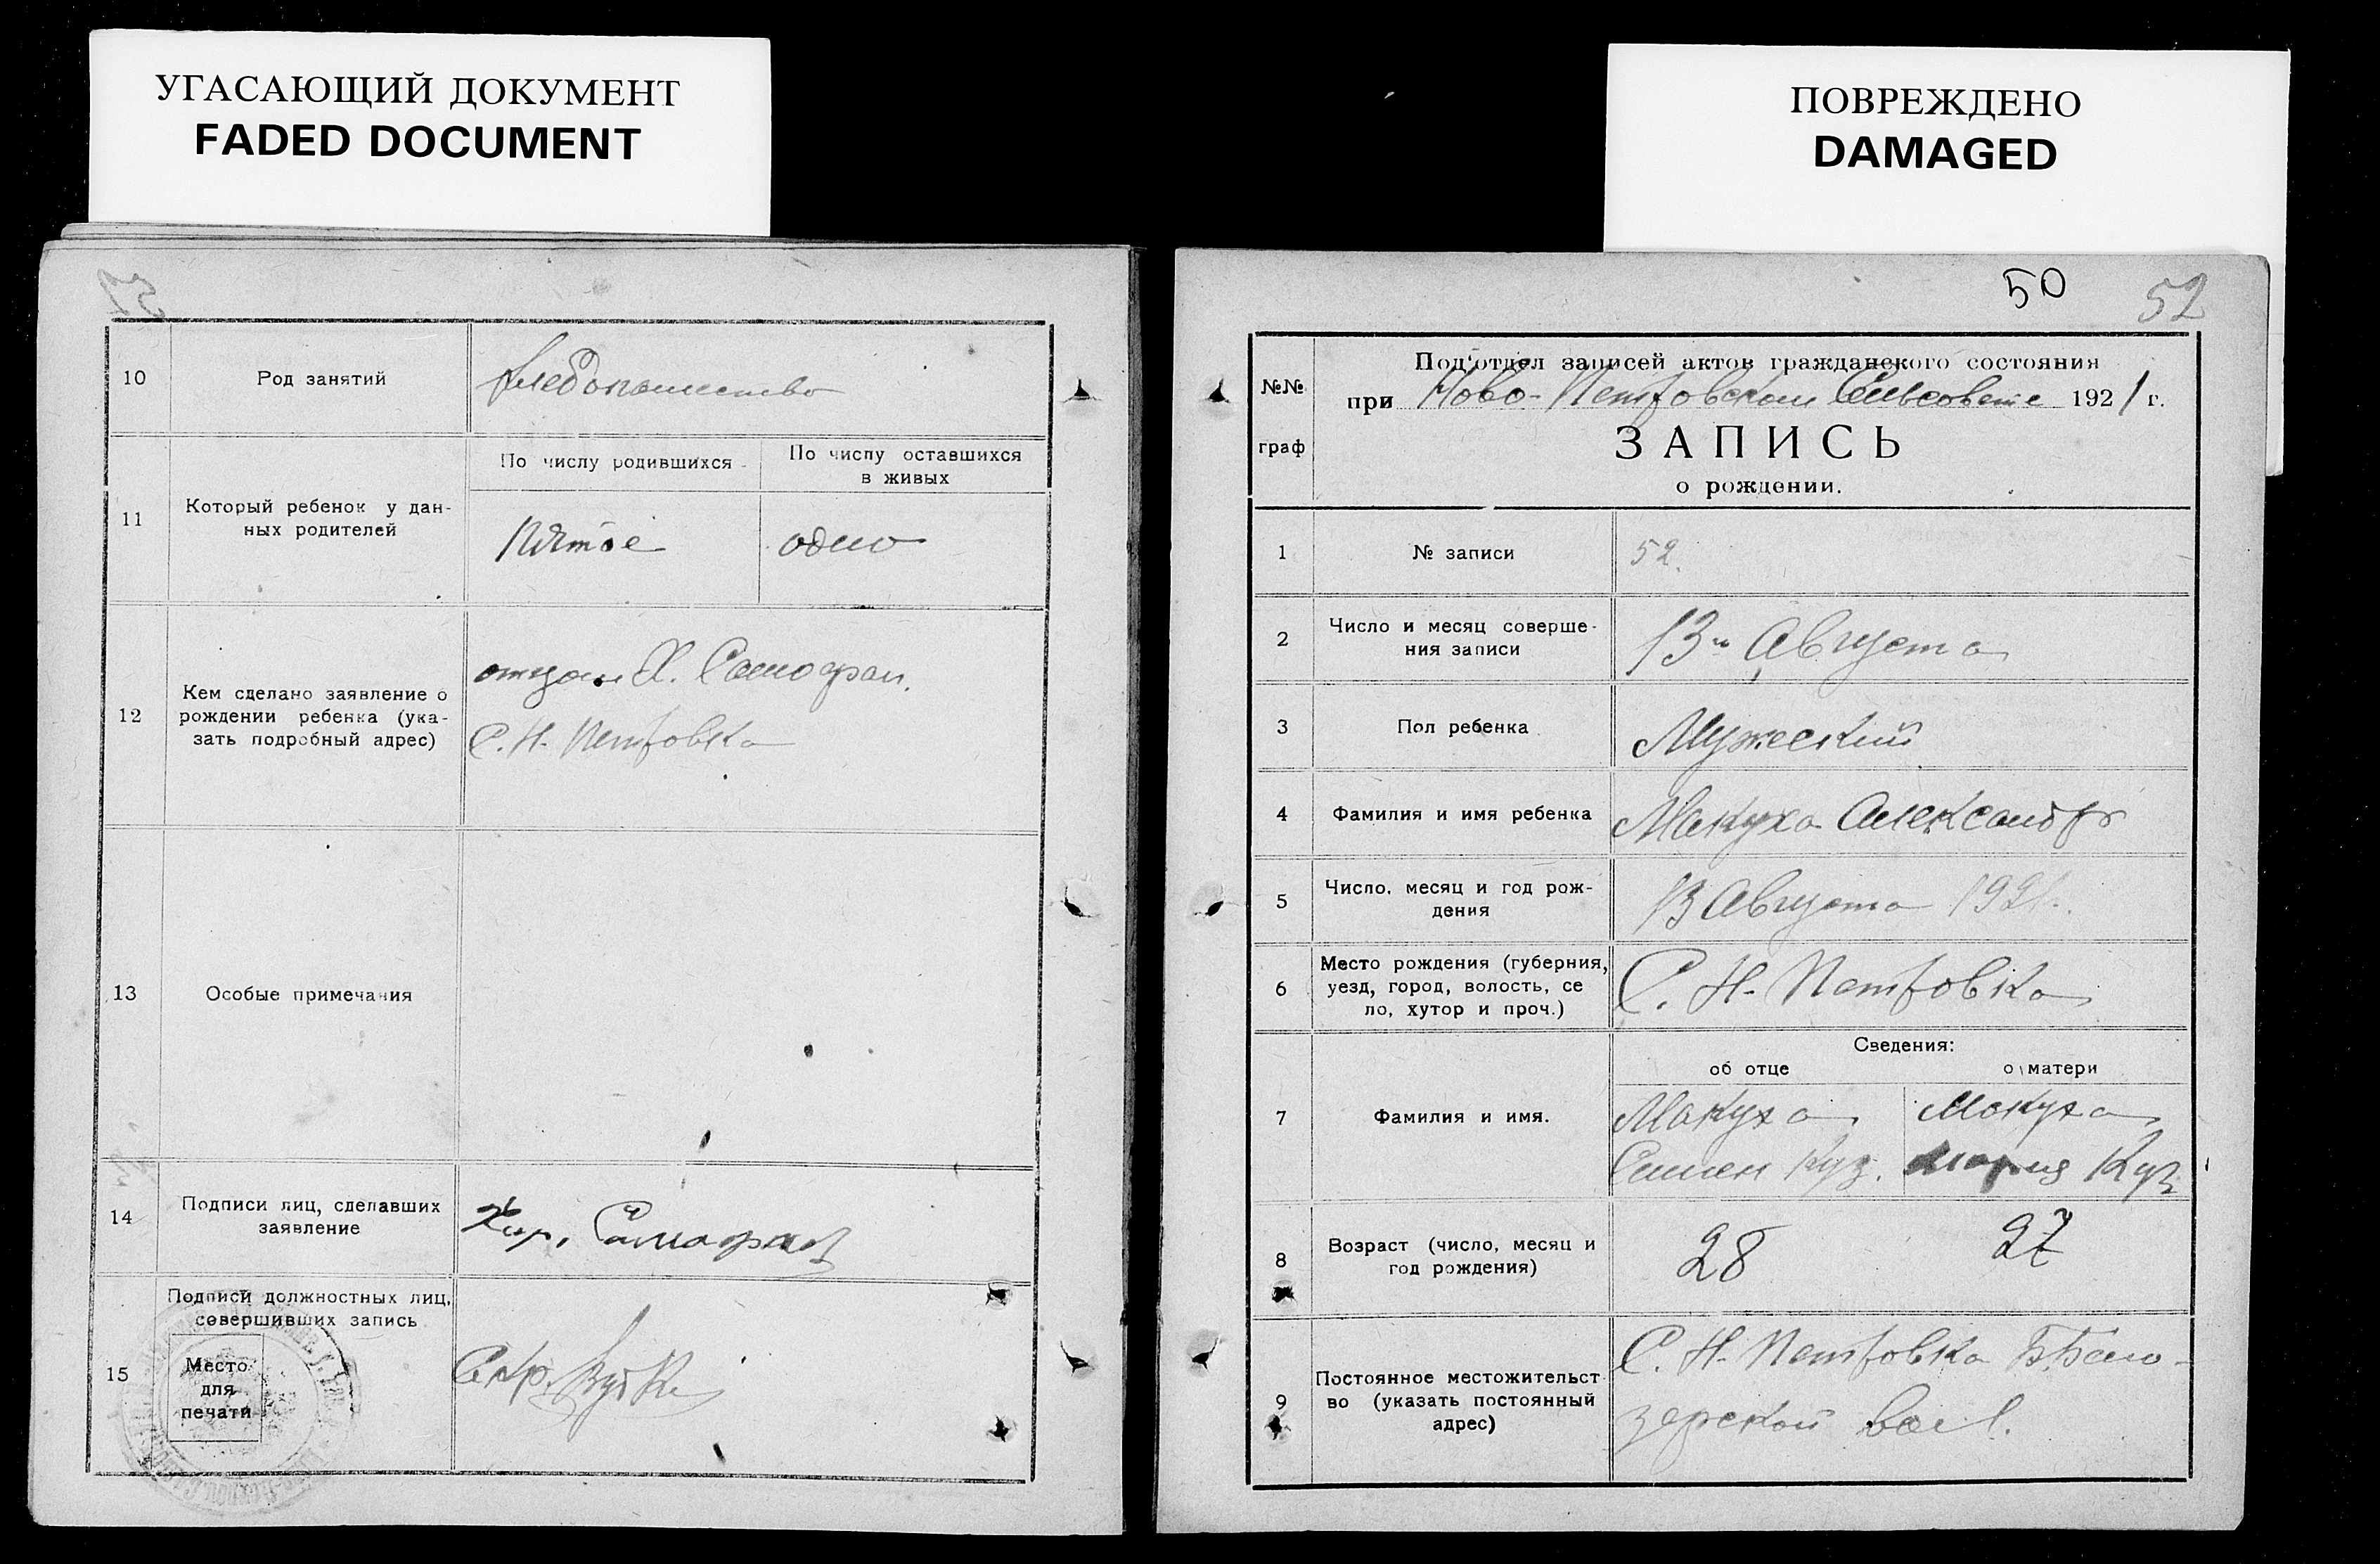 УГАСАЮЩИЙ ДОКУМЕНТ
FADED DOCUMENT
ПОВРЕЖДЕНО
DAMAGED
10
Род занятий
хлебопашество
11
Который ребенок у дан-
ных родителей
По числу родившихся
По числу оставшихся
в живых
Пятое
одно
12
Кем сделано заявление о
рождении ребенка (ука-
зать подробный адрес)
отцом Х.
С. Н-Петровка
13
Особые примечания
14
Подписи лиц, сделавших
заявление
15
Подписи должностных лиц,
совершивших запись
Место
для
печати
Секр.
50
52
№№
граф
Под'отдел записей актов гражданского состояния
при Ново-Петровском Сельсовете 1921 г.
ЗАПИСЬ
о рождении.
1
№ записи
52.
2
Число и месяц соверше-
ния записи
13го Августа
3
Пол ребенка
Мужеский
4
Фамилия и имя ребенка
Макуха Александр
5
Число, месяц и год рож-
дения
13 Августа 1921.
6
Место рождения (губерния,
уезд, город, волость, се
ло, хутор и проч.)
С. Н-Петровка
Сведения:
об отце
о матери
7
Фамилия и имя.
Макуха
Семен Куз.
Макуха
Мария Куз
8
Возраст (число, месяц и
год рождения)
28
27
9
Постоянное местожительст
во (указать постоянный
адрес)
С. Н-Петровка Б.Бело-
зерской вол.